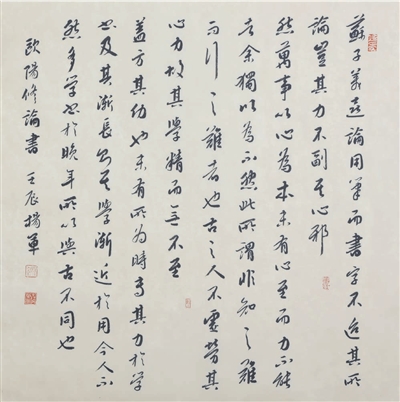 蘇子美喜論用筆而書字不迨其所
論豈其力不副其心邪
然萬事以心為本未有心至而力不能
者余獨以為不然此所謂非知之難
而行之難者也古之人不虛勞其
心力故其學精而無不至
蓋方其幼也未有所為時專其力於學
書及其漸長則其學漸近於用今人不
然多學書於晚年所以與古不同也
歐陽修論書 壬辰